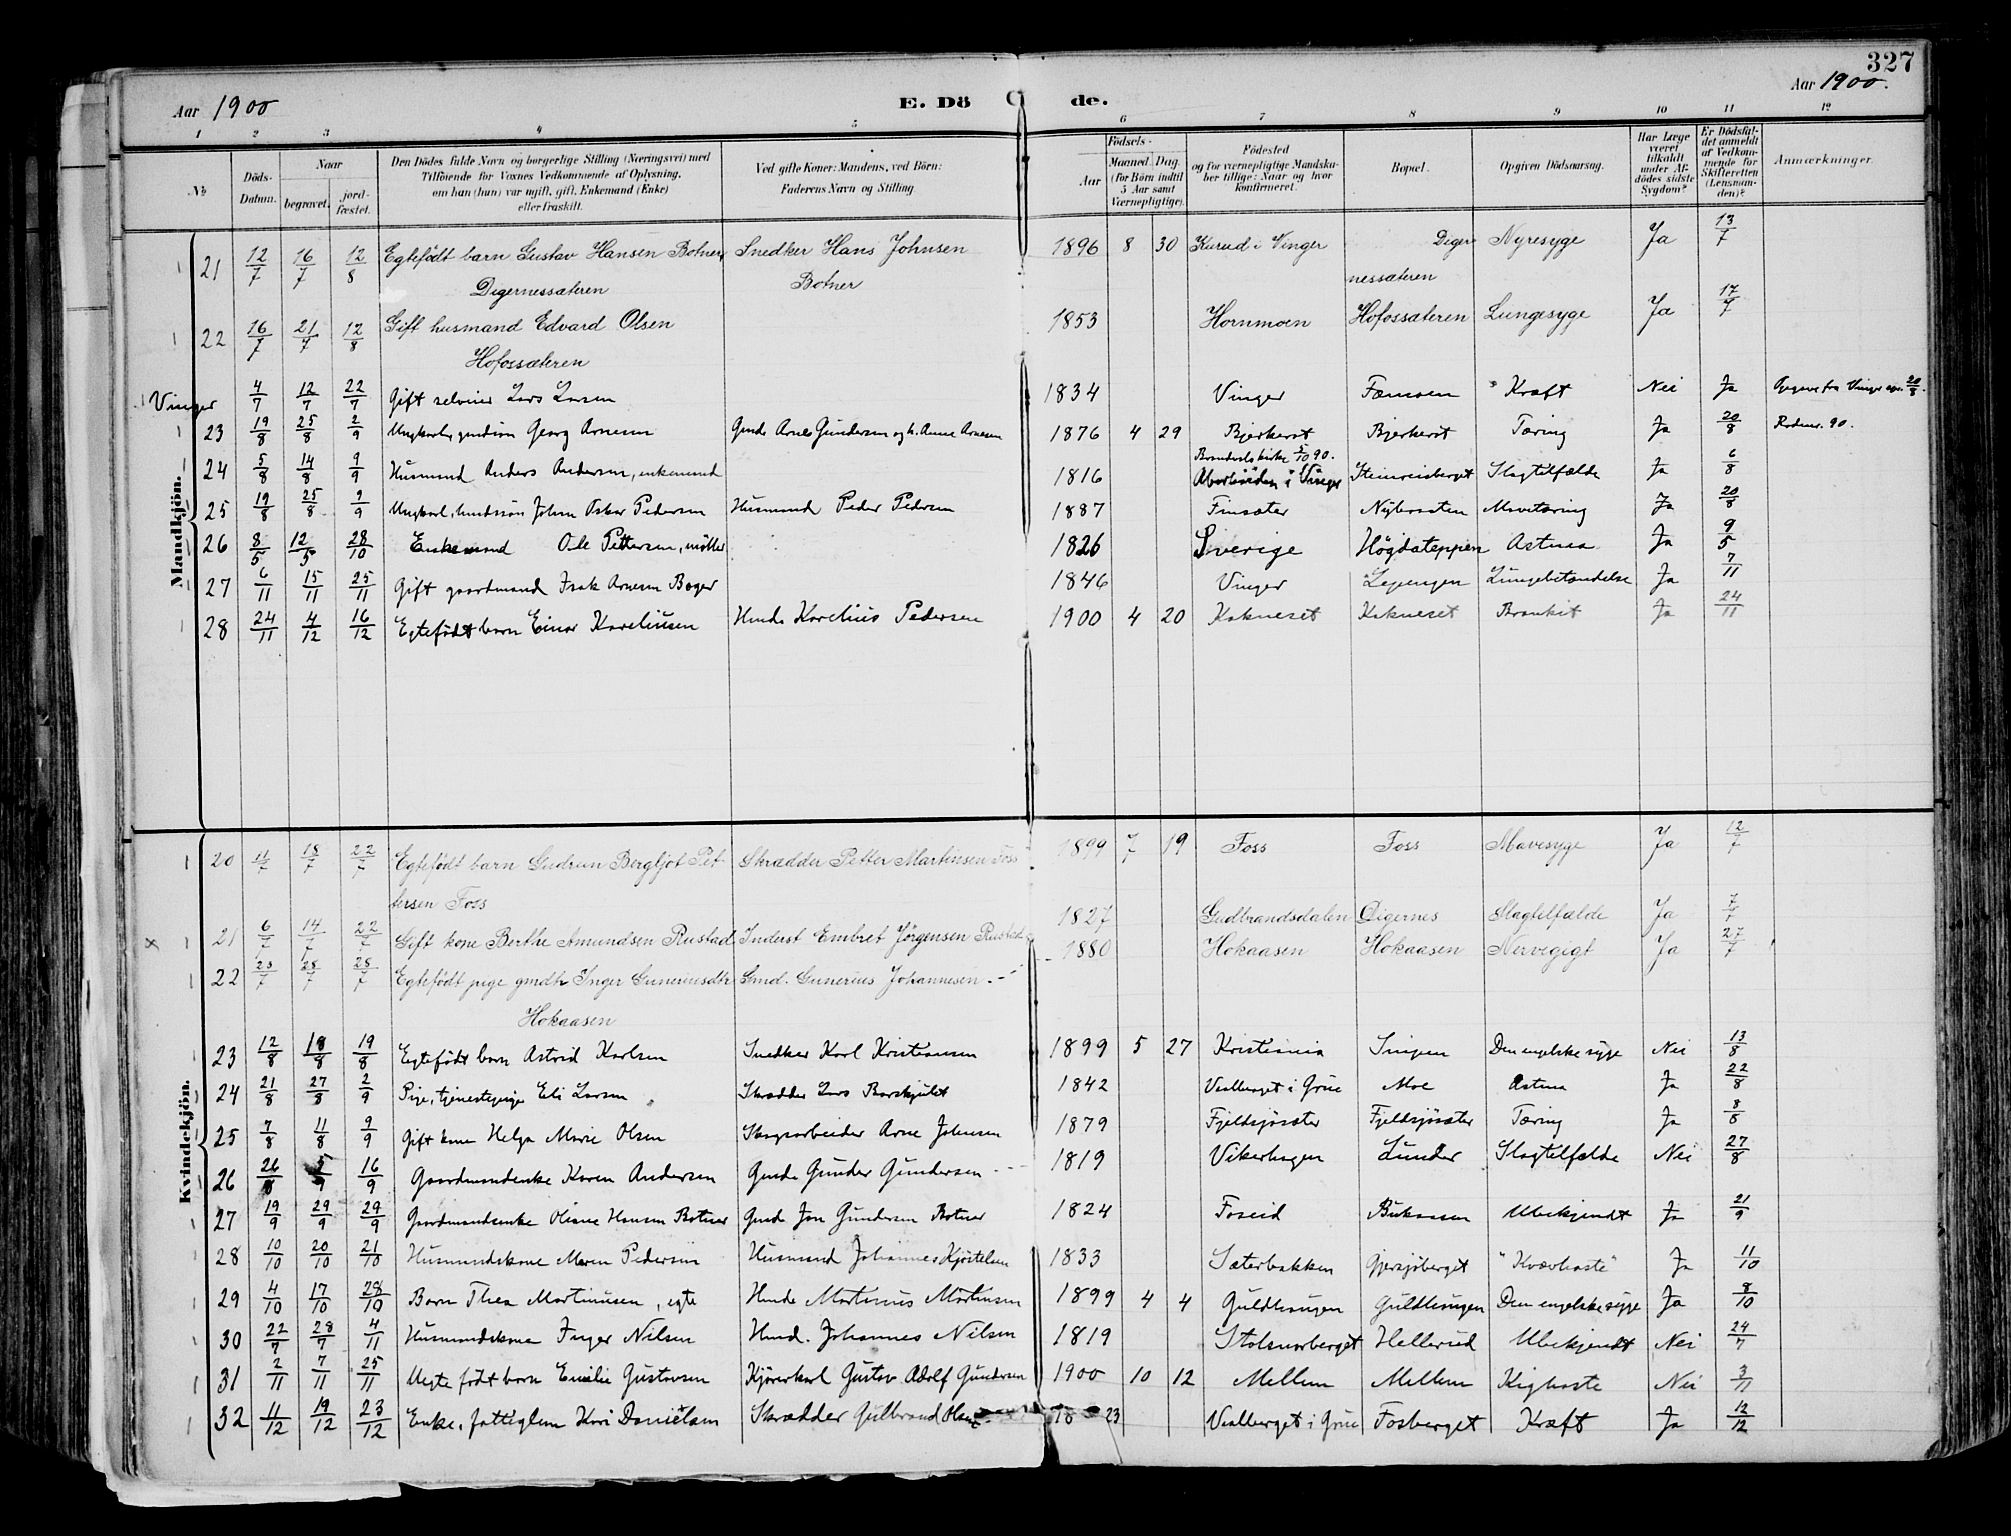 327
Aar 1900
E. Döde.
Aar 1900.
1 2 3 4 5 6 7 8 9 10 11 12
№
Döds-Datum.
Naar
begravet.
jord-fæstet.
Den Dödes fulde Navn og borgerlige Stilling (Næringsvei) med
Tilföiende for Voxnes Vedkommende af Oplysning,
om han (hun) var ugift, gift, Enkemand (Enke)
eller fraskilt.
Ved gifte Koner: Mandens, ved Börn:
Faderens Navn og Stilling.
Födsels-
Aar
Maaned. Dag.
(for Börn indtil
5 Aar samt
Værnepligtige).
Födested
og for værnepligtige Mandska-
ber tillige: Naar og hvor
konfirmeret.
Bopæl.
Opgiven Dödsaarsag.
Har Læge
været
tilkaldt
under Af-
dödes sidste
Sygdom?
Er Dödsfal-
det anmeldt
af Vedkom-
mende for
Skifteretten
(Lensman-
den)?
Anmærkninger.
Mandkjön.
21 12/7 16/7 12/8 Egtefödt barn Gustav Hansen Botner, Snedker Hans Johnsen 1896 8 30 Kurud i Vinger Diger Nyresyge Ja 13/7
Digernessæteren Botner nessæteren
22 16/7 21/7 12/8 Gift husmand Edvard Olsen 1853 Hornmoen Hofossæteren Lungesyge Ja 17/7
Hofossæteren
Vinger 4/7 12/7 22/7 Gift selveier Lars Larsen 1834 Vinger Fæmoen Kræft Nei Ja Opgave fra Vinger
23 19/8 25/8 2/9 Ungkarl, gmdsön Georg Arnesen Gmd. Arne Gundersen og h. Anne Arnesen 1876 4 29 Bjerkerst Bjerkerst Tæring Ja 20/8 Rodenr. 90.
Brandvolskirke 5/10 90.
24 5/8 14/8 9/9 Husmand Anders Andersen, enkemand 1816 i Vinger Slagtilfælde Ja 6/8
25 19/8 25/8 9/9 Ungkarl, hmdssön Johan Oskar Pedersen Husmand Peder Pedersen 1887 Finsæter Mavetæring Ja 20/8
26 8/5 12/5 28/10 Enkemand Ole Pettersen, möller 1826 Sverige Högdateppen Astma Ja 9/5
27 6/11 15/11 25/11 Gift gaardmand Isak Arnesen Boger 1846 Vinger Lungebetændelse Ja 7/11
28 24/11 4/12 16/12 Egtefödt barn Einar Kareliusen Hmd. Karelius Pedersen 1900 4 20 Kakneset Kakneset Bronkit Ja 24/11
Kvindekjön.
20 11/7 18/7 22/7 Egtefödt barn Gudrun Bergljot Pet Skrædder Petter Martinsen Foss 1899 7 19 Foss Foss Mavesyge Ja 12/7
tersen Foss
21 6/7 14/7 22/7 Gift kone Berthe Amundsen Rustad Inderst Embret Jörgensen Rustad 1827 Gudbrandsdalen Digernes Slagtilfælde Ja 7/7
22 23/7 28/7 28/7 Egtefödt pige gmdtr Inger Guneriusdtr Gmd. Gunerius Johannesen 1880 Hokaasen Hokaasen Nervegigt Ja 27/7
Hokaasen
23 12/8 18/8 19/8 Egtefödt barn Astrid Karlsen Snedker Karl Kristiansen 1899 5 27 Kristiania Den engelske syge Nei 13/8
24 21/8 27/8 2/9 Pige, tjenestepige Eli Larsen Skrædder Lars Barskjulet 1842 Vealberget i Grue Moe Astma Ja 22/8
25 7/8 11/8 9/9 Gift kone Helga Marie Olsen Skogsarbeider Arne Johnsen 1879 Fjeldsjösæter Fjeldsjösæter Tæring Ja 8/8
26 26/8 5/9 16/9 Gaardmandenke Karen Andersen Gmd. Gunder Gundersen 1819 Vikerhagen Lunder Slagtilfælde Nei 27/8
27 19/9 29/9 29/9 Gaardmandsenke Oliane Hansen Botner Gmd Jon Gundersen Botner 1824 Foseid Bukaasen Ubekjendt Ja 21/9
28 10/10 20/10 21/10 Husmandskone Maren Pedersen Husmand Johannes Kjöstelsen 1833 Sæterbakken Gjersjöberget "Kvævhoste" Ja 11/10
29 4/10 17/10 28/10 Barn Thea Martinusen, egte Hmd. Martinus Martinsen 1899 4 4 Guldhaugen Guldhaugen Den engelske syge Ja 8/10
30 22/7 28/7 4/11 Husmandskone Inger Nilsen Hmd. Johannes Nilsen 1819 Stolsnorberget Hellerud Ubekjendt Nei 24/7
31 2/11 7/11 25/11 Uegte födt barn Emilie Gustavsen Kjörerkarl Gustav Adolf Gundersen 1900 10 12 Mellem Mellem Kighoste Nei 3/11
32 11/12 19/12 23/12 Enke, fattiglem Kari Danielsen Skrædder Gulbrand Olsen 1823 Vealberget i Grue Fosberget Kræft Ja 12/12